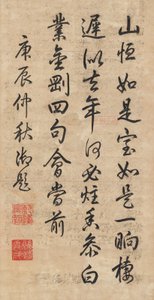 山恒如是室如是一晌棲
遲似去年何必炷香參白
業金剛四句會當前
庚辰仲秋御題